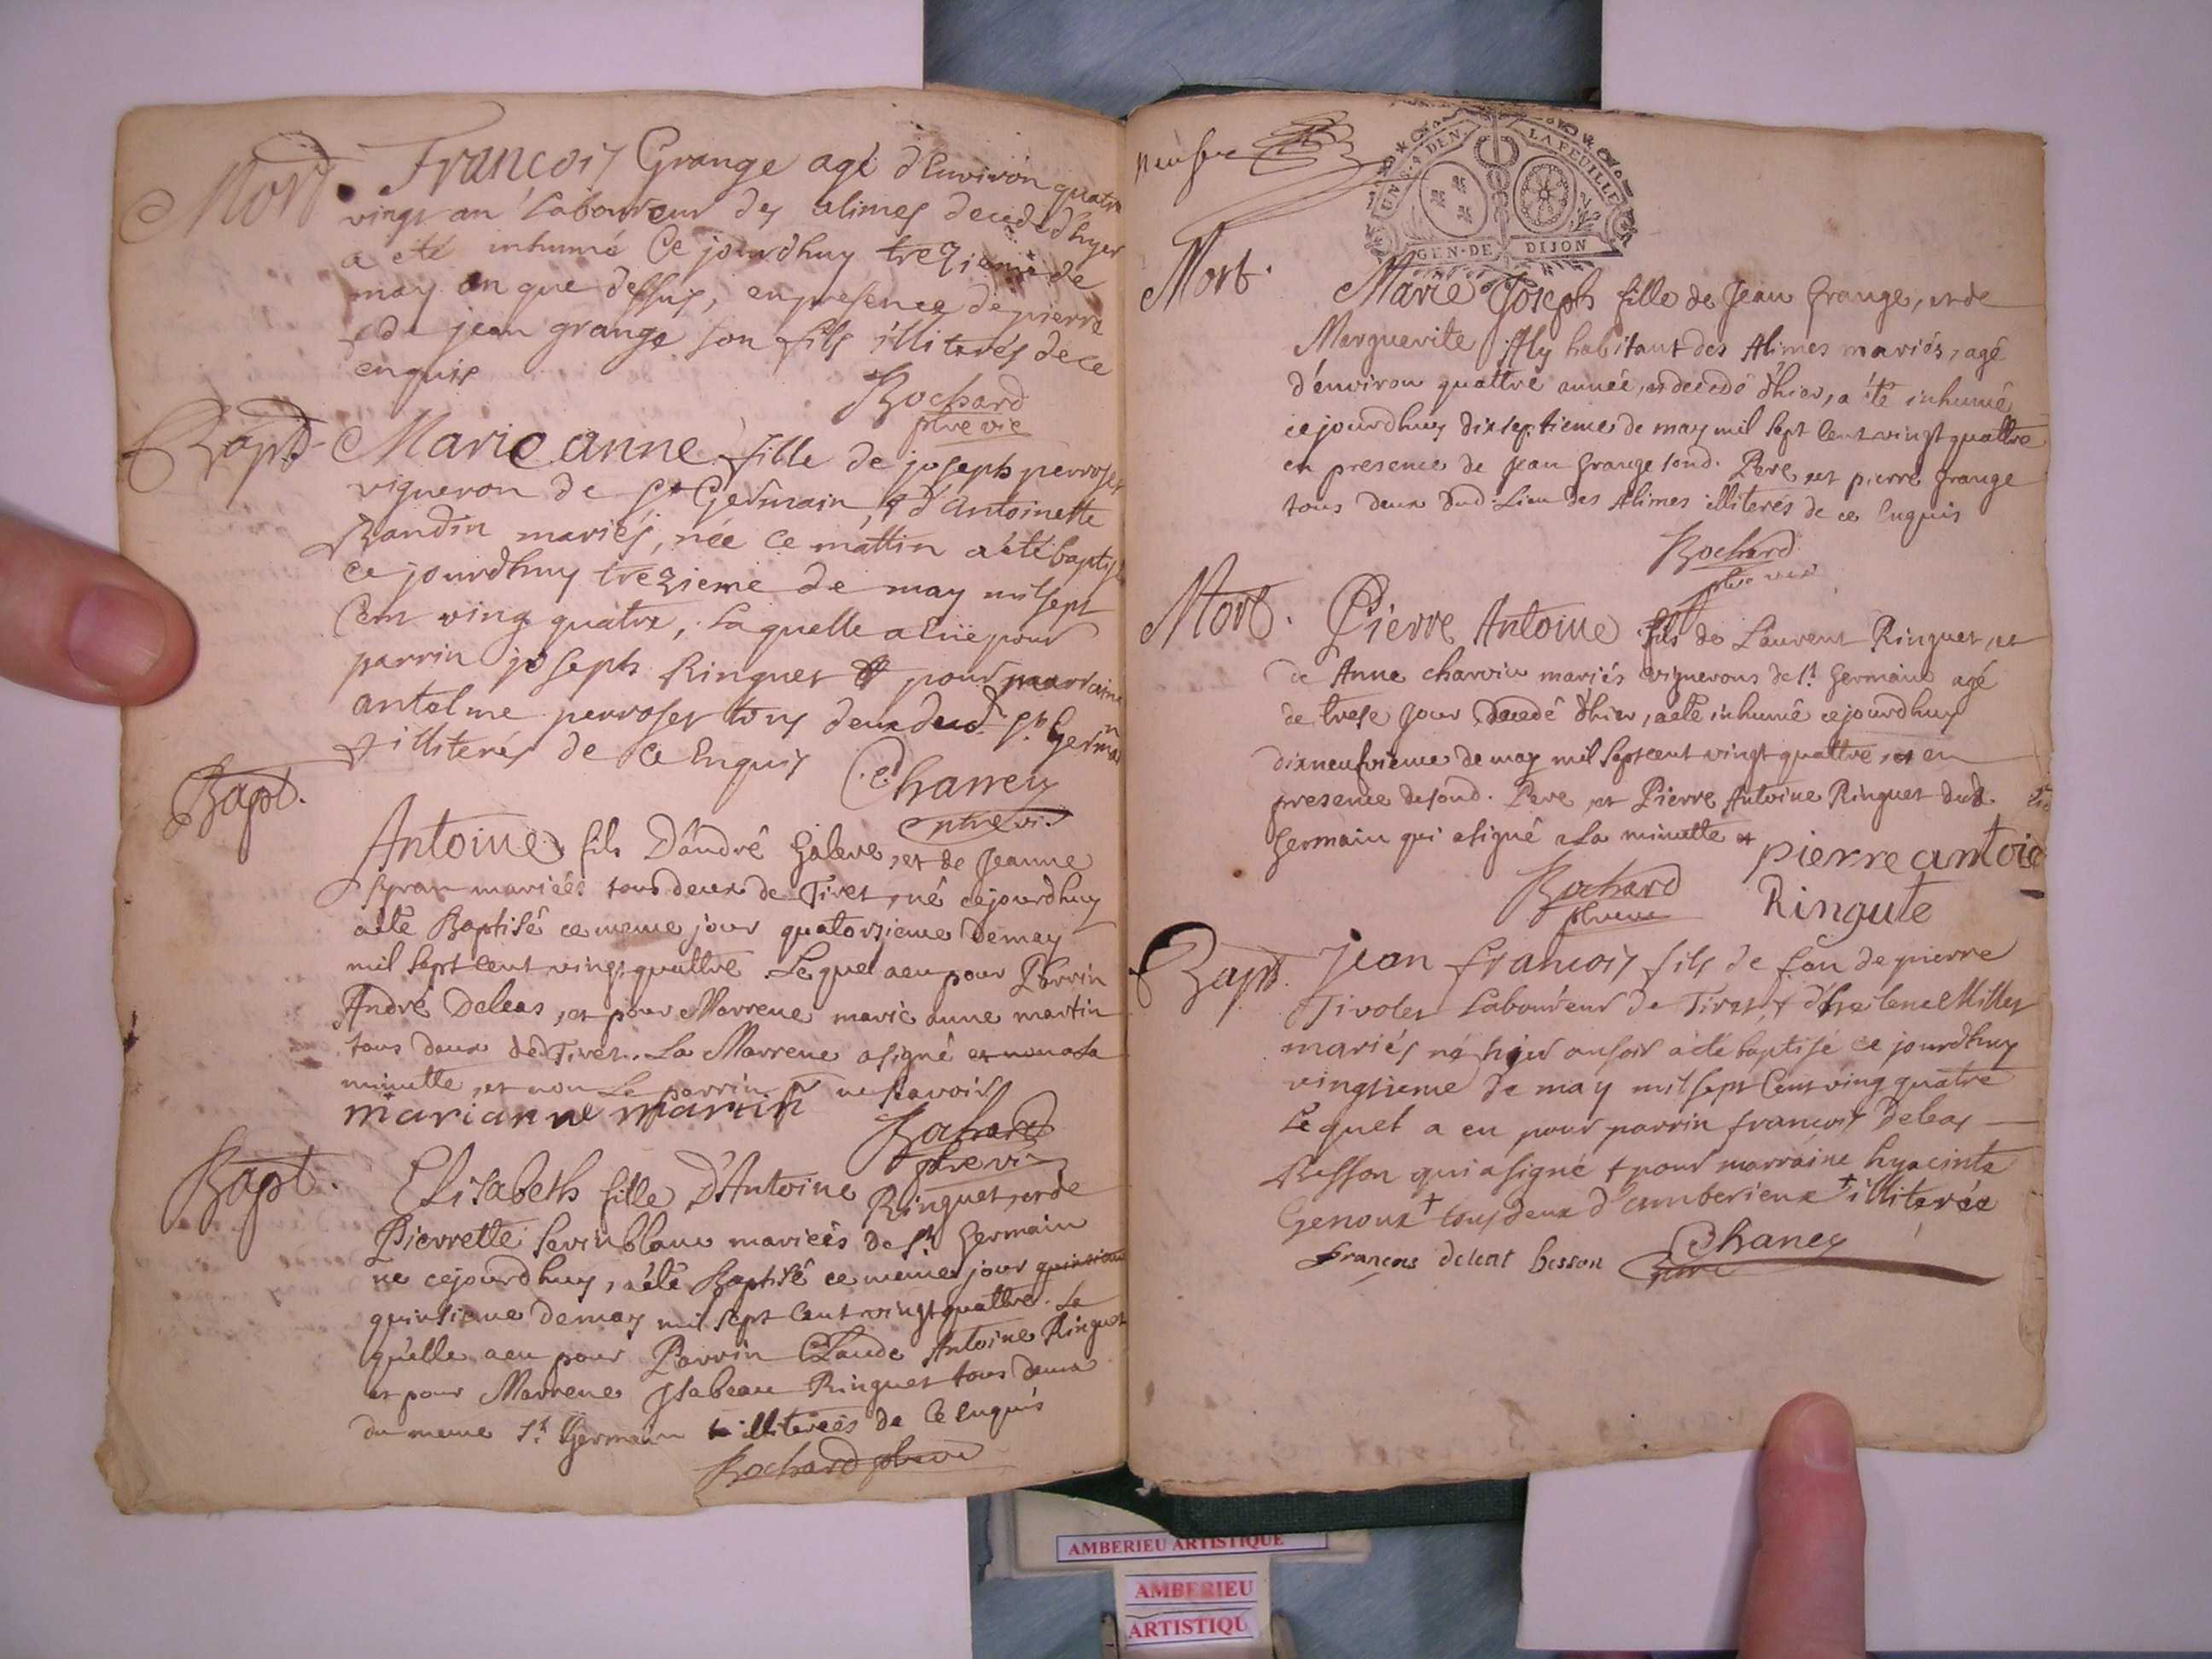 Mort. François Grange agé d'Environ quatre
vingt an Laboureur des alimes decedé d'hyer
a eté inhumé Ce jourdhuy trezieme de
may an que dessus, en presence de pierre
& de jean grange son fils illiterés de ce
enquis
Rochard
ptre vic
Bapt. Marie anne fille de joseph perroset
vigneron de St Germain, & d'antoinette
Bandin mariés, née ce mattin a été baptisée
ce jourdhuy trezieme de may mil sept
Cent ving quatre, Laquelle a Eüe pour
parrin joseph Ringuet & pour marraine
antelme perroset tous deux dud. St. Germain
& illiterés de ce Enquis
Charrey
ptre vi.
Bapt.
Antoine fils D'andrê Galeve, et de Jeanne
mariéés tous deux de Tiret, né cejourdhuy
a été Baptisê ce meme jour quatorzieme demay
mil sept cent vingt quattre. Lequel a eu pour Parrin
Andrê Deleas, et pour Marrene marie anne martin
tous deux de Tiret. La Marrene a signé
minutte, et non Le parrin ne savoir
marianne martin
Rochard
ptre vi.
Bapt. Elisabeth fille D'Antoine Ringuet, et de
Pierrette Savinblanc mariéés de St. Germain
ne cejourdhuy, a été Baptisê ce même jour
quinsieme demay mil sept cent vingt quattre. La
quelle a eu pour Parrin Claude Antoine Ringuet
et pour Marrene Isabeau Ringuet tous deux
du meme St. Germain & illiterées de ce enquis
Rochard ptre vi
neufve
LA FEUILLE
GEN·DE DIJON
Mort. Marie Joseph fille de Jean Grange, et de
Marguerite Aly habitant des Alimes mariés, agé
d'environ quattre année, et decedé d'hier, a été inhumé
cejourdhuy dixseptieme de may mil sept Cent vingt quattre
en presence de Jean Grange sond. Pere et pierre Grange
tous deux dud. Lieu des Alimes illiterés de ce enquis
Rochard
ptre vic
Mort. Pierre Antoine fils de Laurent Ringuet, et
de Anne charvin mariés vignerons de St. Germain agé
de trese jour decedê d'hier, a eté inhumê cejourdhuy
dixneufvieme de may mil sept cent vingt quattre, et en
presence de sond. Pere et Pierre Antoine Ringuet dud. St
Germain qui a signé a la minutte
pierre antoie
Ringute
Rochard
ptre vic
Bapt. Jean francois fils de feu de pierre
Tivolet Laboureur de Tiret & d'helene Millet
mariés né hier au soir a été baptisé ce jourdhuy
vingtieme de may mil sept Cent ving quatre
Lequel a eu pour parrin francois Deleas
Besson qui a signé & pour marraine hyacinte
Genoux + tous deux d'amberieux + illiterée
françois deleat besson
Charrey
ptre
AMBERIEU ARTISTIQUE
AMBERIEU
ARTISTIQU